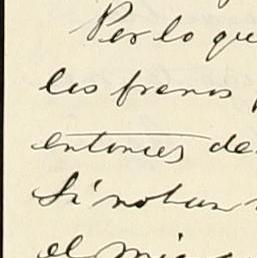 Por lo que
les frenos
entonces de
Si notan
el